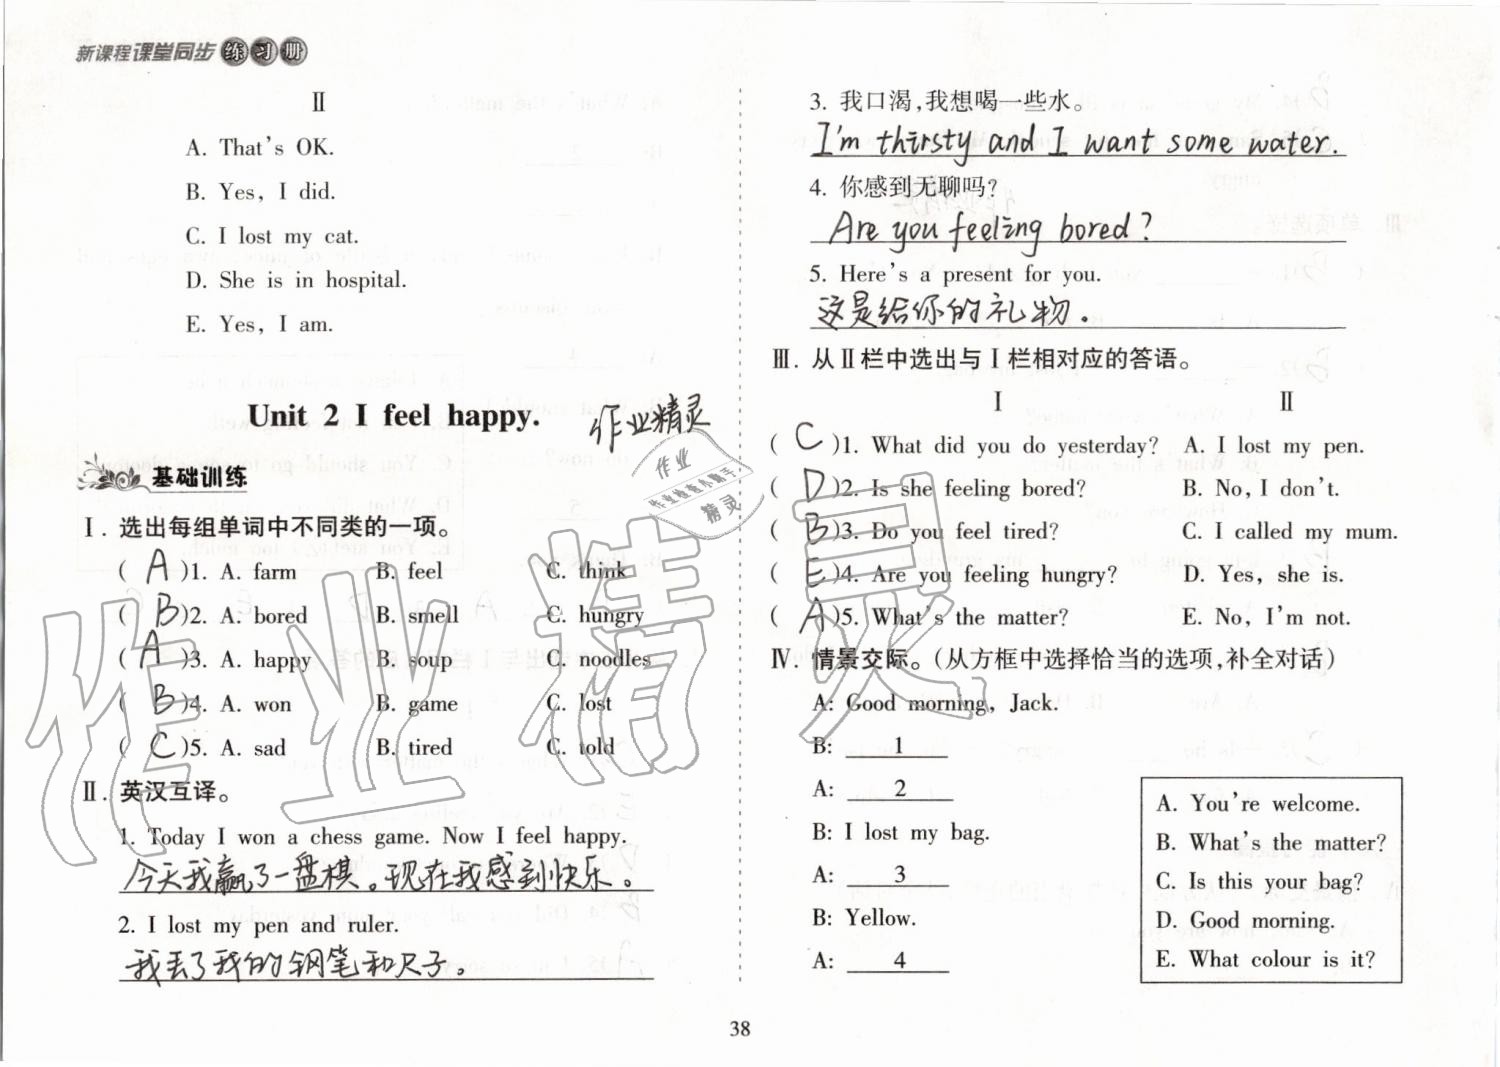 新课程课堂同步练习册
Ⅱ
A. That's OK.
B. Yes, I did.
C. I lost my cat.
D. She is in hospital.
E. Yes, I am.
Unit 2 I feel happy.
作业精灵
基础训练
Ⅰ. 选出每组单词中不同类的一项。
( A )1. A. farm B. feel C. think
( B )2. A. bored B. smell C. hungry
( A )3. A. happy B. soup C. noodles
( B )4. A. won B. game C. lost
( C )5. A. sad B. tired C. told
Ⅱ. 英汉互译。
1. Today I won a chess game. Now I feel happy.
今天我赢了一盘棋。现在我感到快乐。
2. I lost my pen and ruler.
我丢了我的钢笔和尺子。
3. 我口渴,我想喝一些水。
I'm thirsty and I want some water.
4. 你感到无聊吗?
Are you feeling bored?
5. Here's a present for you.
这是给你的礼物.
Ⅲ. 从Ⅱ栏中选出与Ⅰ栏相对应的答语。
Ⅰ Ⅱ
( C )1. What did you do yesterday? A. I lost my pen.
( D )2. Is she feeling bored? B. No, I don't.
( B )3. Do you feel tired? C. I called my mum.
( E )4. Are you feeling hungry? D. Yes, she is.
( A )5. What's the matter? E. No, I'm not.
Ⅳ. 情景交际。(从方框中选择恰当的选项,补全对话)
A: Good morning, Jack.
B: 1
A: 2
B: I lost my bag.
A: 3
B: Yellow.
A: 4
A. You're welcome.
B. What's the matter?
C. Is this your bag?
D. Good morning.
E. What colour is it?
作业
作业检查小助手
精灵
作业精灵
38